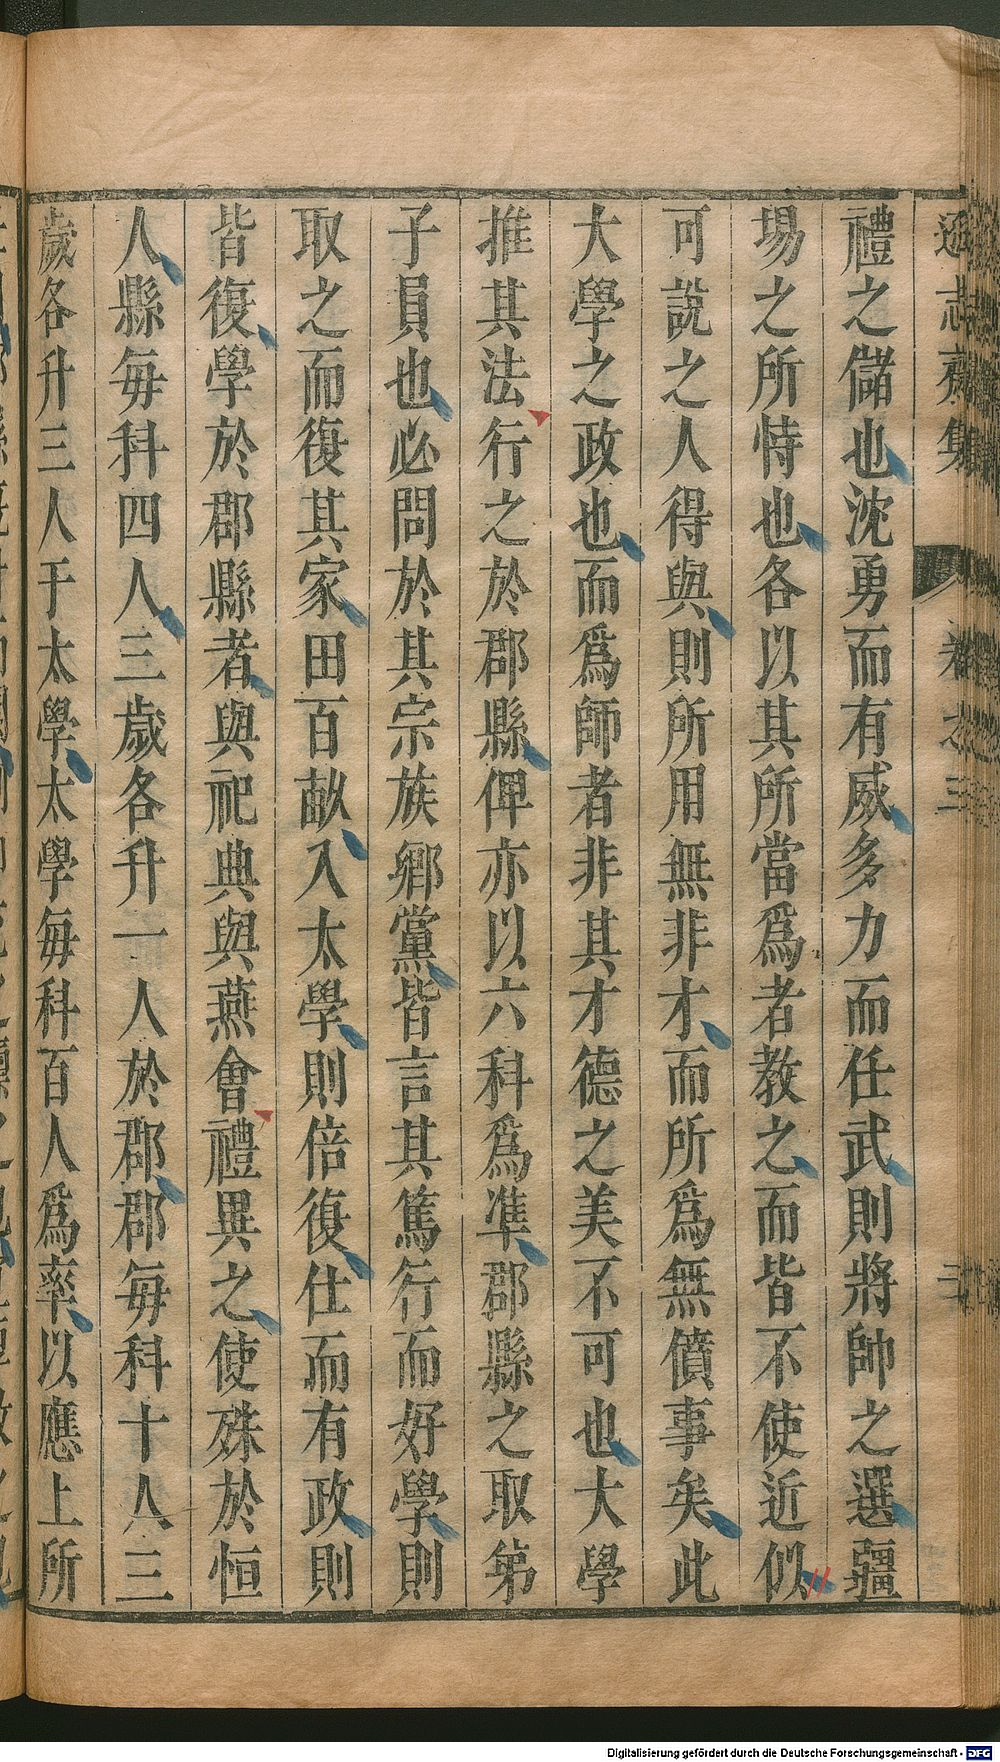 遜志齋集 卷之三 二
禮之儲也沈勇而有威多力而任武則將帥之選疆
場之所恃也各以其所當爲者教之而皆不使近似
可說之人得與則所用無非才而所爲無僨事矣此
大學之政也而爲師者非其才德之美不可也大學
推其法行之於郡縣俾亦以六科爲凖郡縣之取第
子員也必問於其宗族鄉黨皆言其篤行而好學則
取之而復其家田百畝入太學則倍復仕而有政則
皆復學於郡縣者與祀典與燕會禮異之使殊於恒
人縣每科四人三歲各升一人於郡郡每科十人三
歲各升三人于太學太學每科百人爲率以應上所
Digitalisierung gefördert durch die Deutsche Forschungsgemeinschaft - DFG